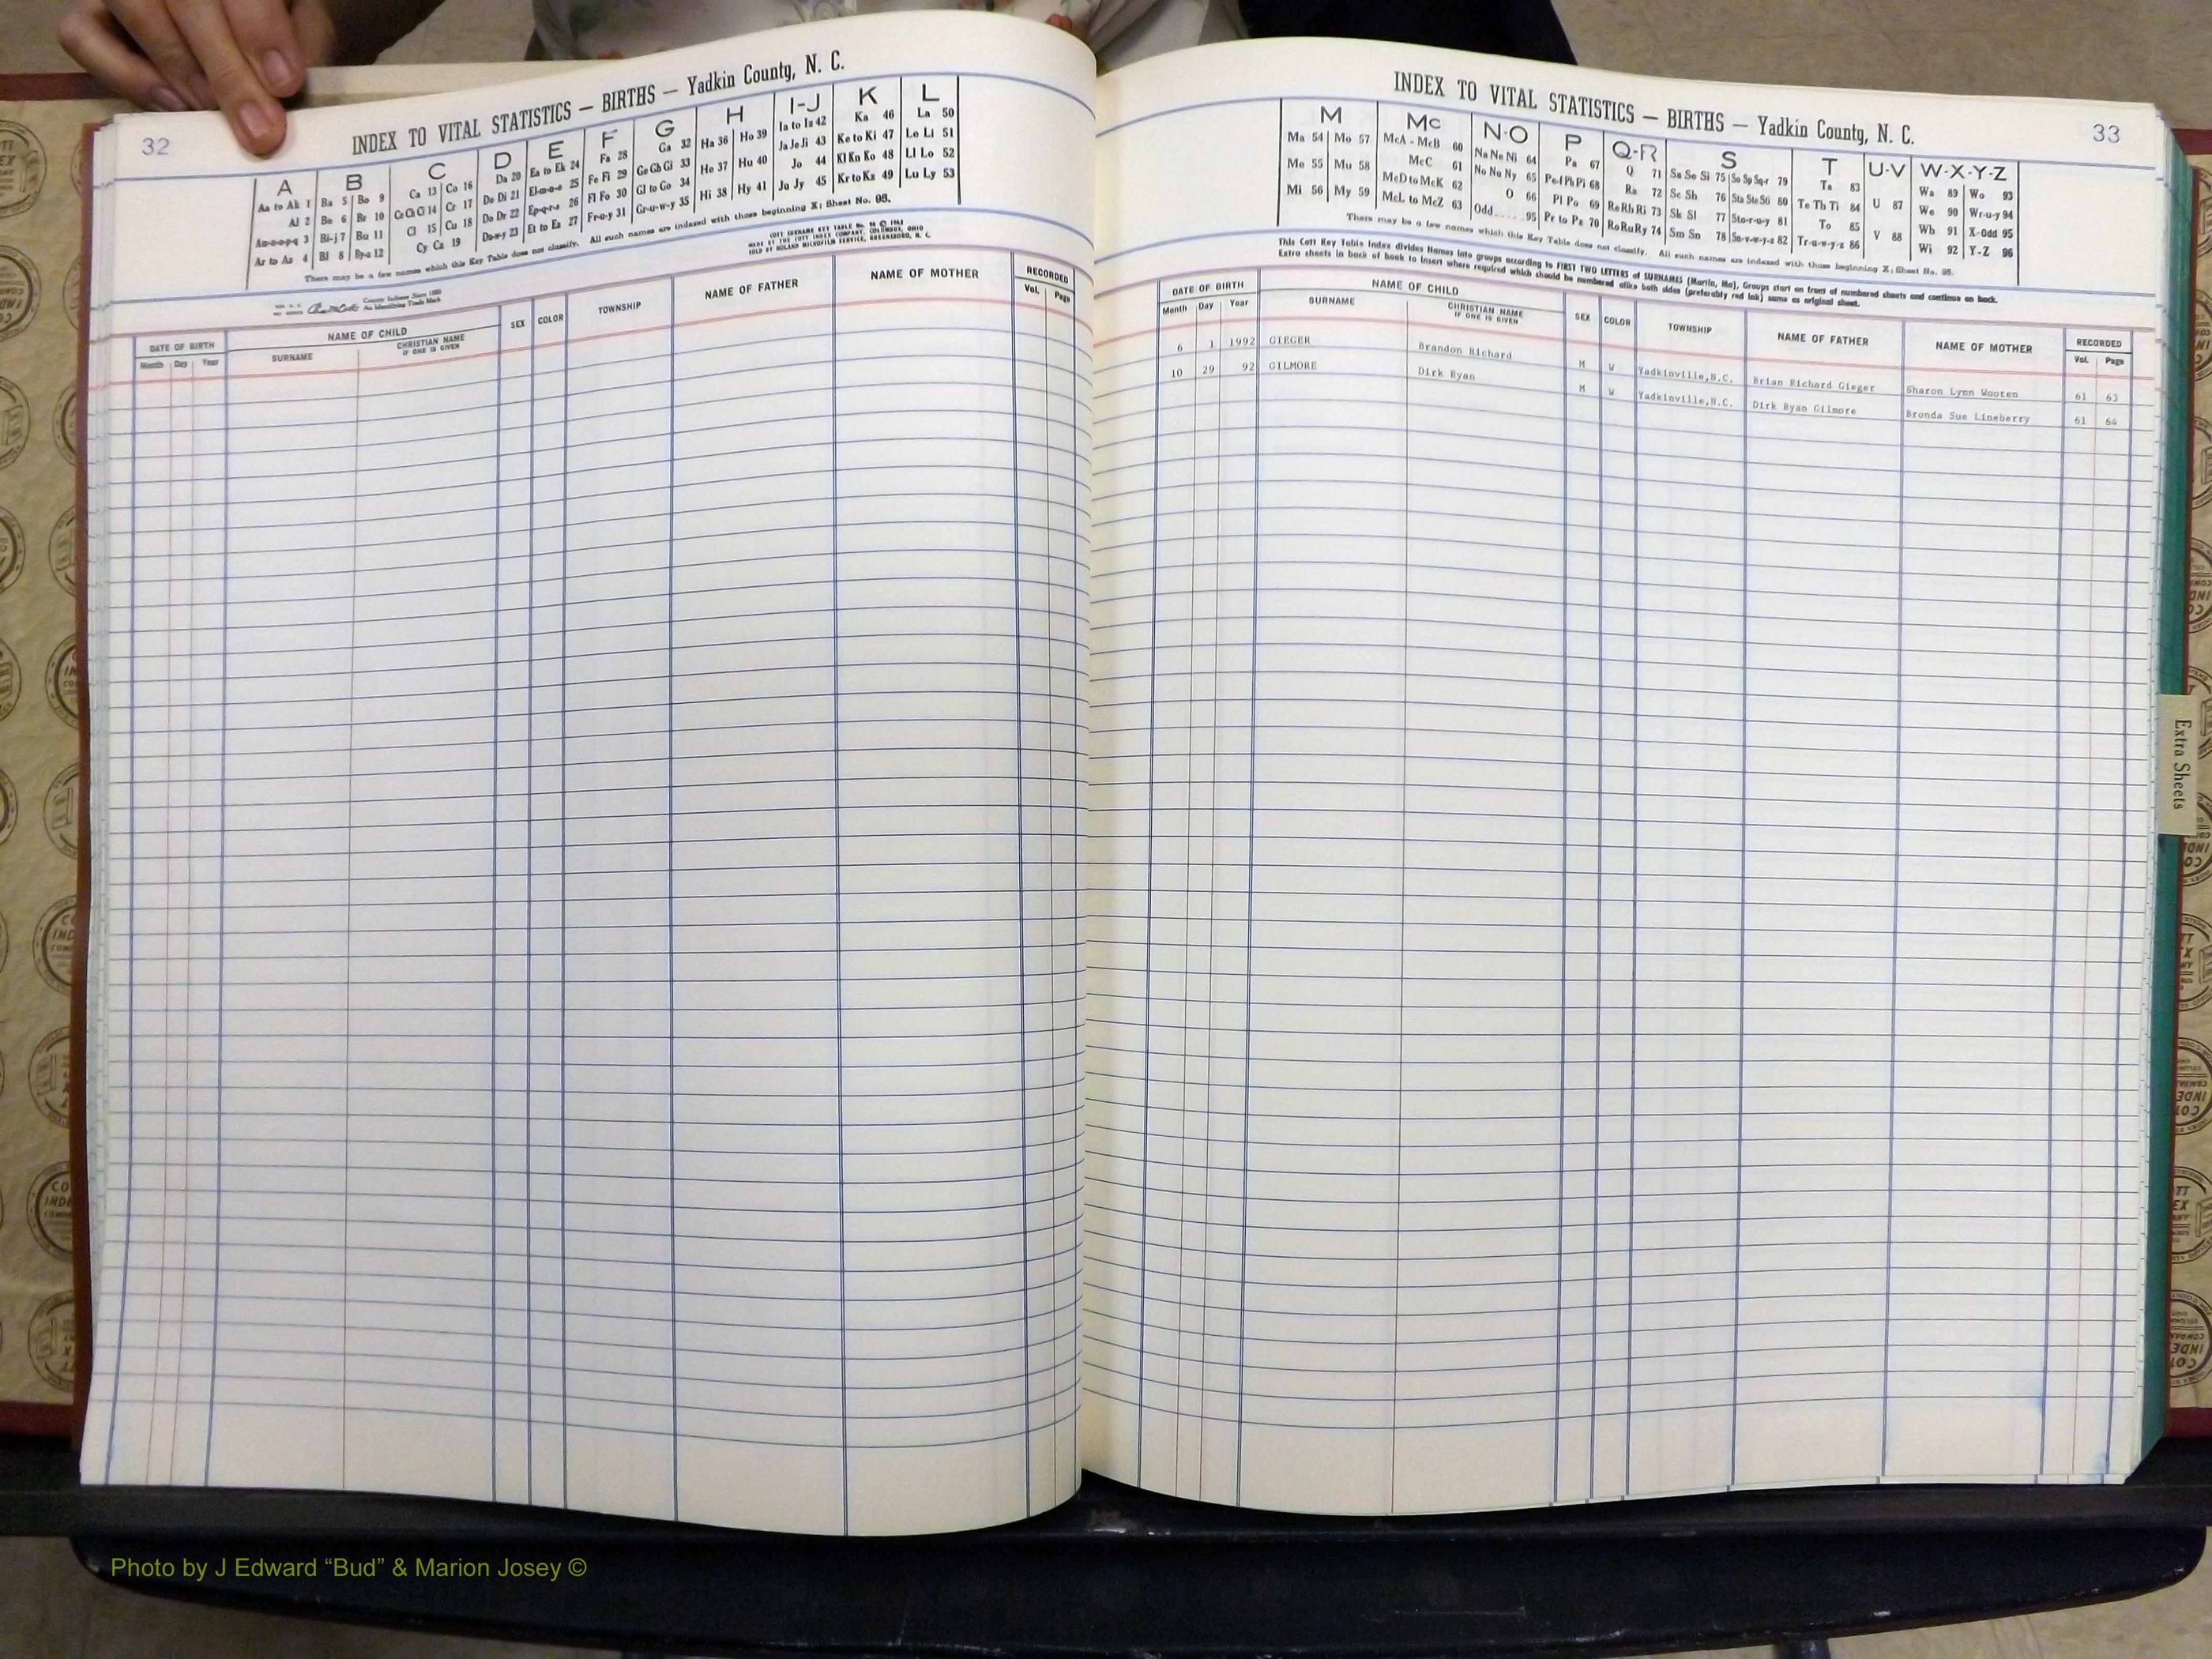 32
INDEX TO VITAL STATISTICS — BIRTHS — Yadkin County, N. C.
A B C D E F G H I-J K L
Aa to Ak 1 Ba 5 Bo 9 Ca 13 Co 16 Da 20 Ea to Ek 24 Fa 28 Ga 32 Ha 36 Ho 39 Ia to Iz 42 Ka 46 La 50
Al 2 Be 6 Br 10 Ce Ch Ci 14 Cr 17 De Di 21 El-m-n-o 25 Fe Fi 29 Ge Gh Gi 33 He 37 Hu 40 Ja Je Ji 43 Ke to Ki 47 Le Li 51
Am-n-o-p-q 3 Bi-j 7 Bu 11 Cl 15 Cu 18 Do Dr 22 Ep-q-r-s 26 Fl Fo 30 Gl to Go 34 Hi 38 Hy 41 Jo 44 Kl Kn Ko 48 Ll Lo 52
Ar to Az 4 Bl 8 By-z 12 Cy Cz 19 Du-w-y 23 Et to Ez 27 Fr-u-y 31 Gr-u-w-y 35 Ju Jy 45 Kr to Kz 49 Lu Ly 53
There may be a few names which this Key Table does not classify. All such names are indexed with those beginning X; Sheet No. 95.
MADE BY THE COTT INDEX COMPANY, COLUMBUS, OHIO
SOLD BY ROLAND MICROFILM SERVICE, GREENSBORO, N. C.
County Indexes Since 1888
An Identifying Trade Mark
DATE OF BIRTH NAME OF CHILD SEX COLOR TOWNSHIP NAME OF FATHER NAME OF MOTHER RECORDED
Month Day Year SURNAME CHRISTIAN NAME IF ONE IS GIVEN Vol. Page
INDEX TO VITAL STATISTICS — BIRTHS — Yadkin County, N. C.
33
M Mc N-O P Q-R S T U-V W-X-Y-Z
Ma 54 Mo 57 McA - McB 60 Na Ne Ni 64 Pa 67 Q 71 Sa Se Si 75 So Sp Sq-r 79 Ta 83 U 87 Wa 89 Wo 93
Me 55 Mu 58 McC 61 No Nu Ny 65 Pe-f Ph Pi 68 Ra 72 Sc Sh 76 Sta Ste Sti 80 Te Th Ti 84 V 88 We 90 Wr-u-y 94
Mi 56 My 59 McD to McK 62 O 66 Pl Po 69 Re Rh Ri 73 Sk Sl 77 Sto-r-u-y 81 To 85 Wh 91 X-Odd 95
McL to McZ 63 Odd 95 Pr to Pz 70 Ro Ru Ry 74 Sm Sn 78 Su-v-w-y-z 82 Tr-u-w-y-z 86 Wi 92 Y-Z 96
There may be a few names which this Key Table does not classify. All such names are indexed with those beginning X; Sheet No. 95.
This Cott Key Table Index divides Names into groups according to FIRST TWO LETTERS of SURNAMES (Martin, Ma), Groups start on front of numbered sheets and continue on back.
Extra sheets in back of book to insert where required which should be numbered alike both sides (preferably red ink) same as original sheet.
DATE OF BIRTH NAME OF CHILD SEX COLOR TOWNSHIP NAME OF FATHER NAME OF MOTHER RECORDED
Month Day Year SURNAME CHRISTIAN NAME IF ONE IS GIVEN Vol. Page
6 1 1992 GIEGER Brandon Richard M W Yadkinville,N.C. Brian Richard Gieger Sharon Lynn Wooten 61 63
10 29 92 GILMORE Dirk Ryan M W Yadkinville,N.C. Dirk Ryan Gilmore Bronda Sue Lineberry 61 64
Extra Sheets
Photo by J Edward “Bud” & Marion Josey ©